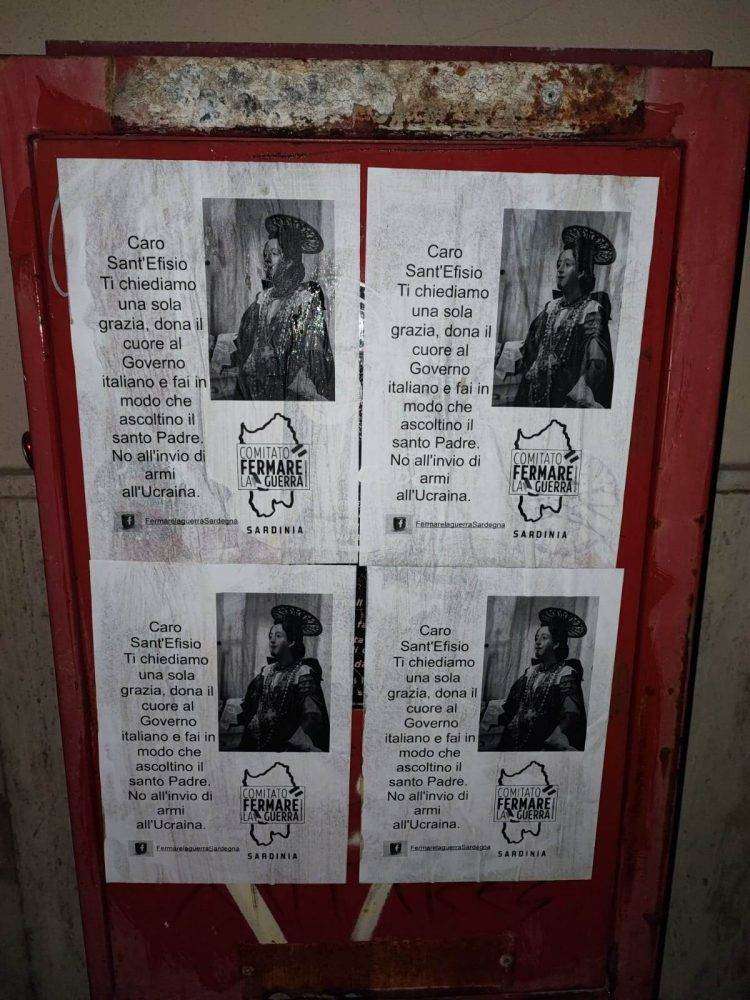 Caro
Sant'Efisio
Ti chiediamo
una sola
grazia, dona il
cuore al
Governo
italiano e fai in
modo che
ascoltino il
santo Padre.
No all'invio di
armi
all'Ucraina.
FermarelaguerraSardegna
COMITATO
FERMARE
LA GUERRA
SARDINIA
Caro
Sant'Efisio
Ti chiediamo
una sola
grazia, dona il
cuore al
Governo
italiano e fai in
modo che
ascoltino il
santo Padre.
No all'invio di
armi
all'Ucraina.
FermarelaguerraSardegna
COMITATO
FERMARE
LA GUERRA
SARDINIA
Caro
Sant'Efisio
Ti chiediamo
una sola
grazia, dona il
cuore al
Governo
italiano e fai in
modo che
ascoltino il
santo Padre.
No all'invio di
armi
all'Ucraina.
FermarelaguerraSardegna
COMITATO
FERMARE
LA GUERRA
SARDINIA
Caro
Sant'Efisio
Ti chiediamo
una sola
grazia, dona il
cuore al
Governo
italiano e fai in
modo che
ascoltino il
santo Padre.
No all'invio di
armi
all'Ucraina.
FermarelaguerraSardegna
COMITATO
FERMARE
LA GUERRA
SARDINIA